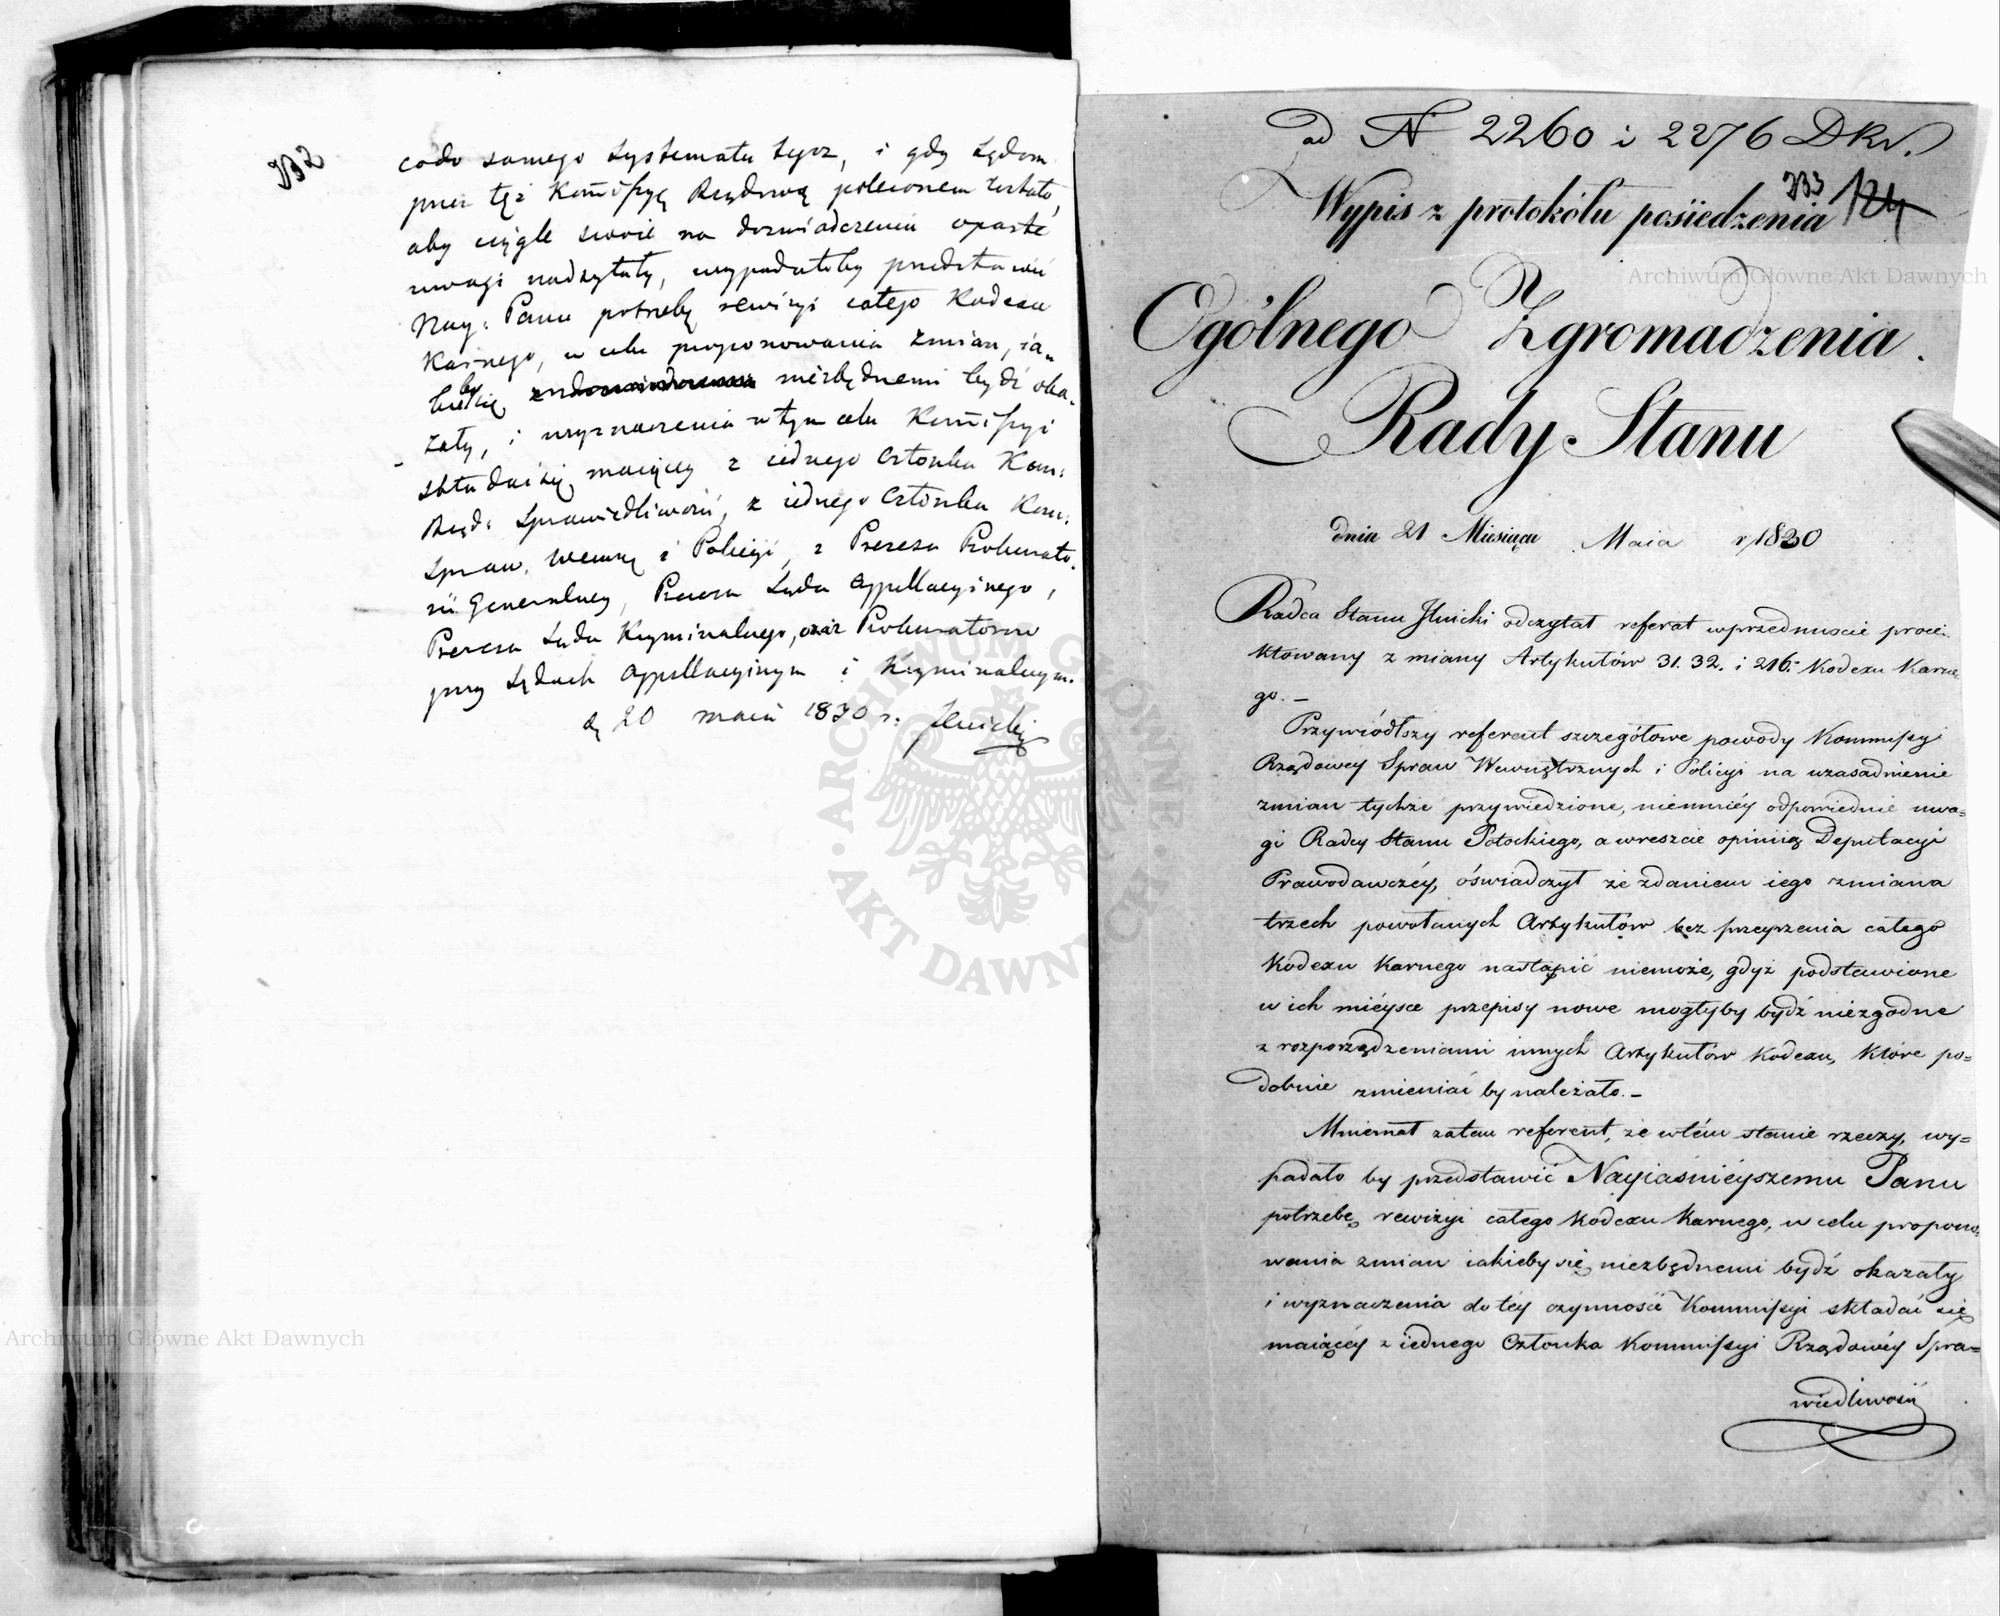 332
codo samego systematu tegoż, i gdy Sądom
przez tęż Kommissyę Rządową poleconem zostało,
aby ciągle swoie na doświadczeniu oparte
uwagi nadsyłały, wypadałoby przedstawić
Nay: Panu potrzebę rewizyi całego Kodexu
Karnego, w celu proponowania zmian, ja-
kieby się niezbędnemi bydź oka-
zały, i wyznaczenia w tym celu Kommissyi
składać się maiącey z iednego Członka Kom:
Rząd: Sprawiedliwości, z iednego Członka Kom:
Spraw. Wewnę i Policyi, z Prezesa Prokurato-
rii Generalney, Prezesa Sądu Appellacyinego,
Prezesa Sądu Kryminalnego, oraz Prokuratorów
przy Sądach Appellacyinym i Kryminalnym.
d. 20 maia 1830 r. Ilnicki
ad N 2260 i 2276 DKr.
333 124
Wypis z protokółu posiedzenia
Ogólnego Zgromadzenia.
Rady Stanu
dnia 21 Miesiąca Maia r 1830
Radca Stanu Ilnicki odczytał referat wprzedmiocie proie-
ktowany zmiany Artykułów 31. 32. i 216. Kodexu Karne
go. –
Przywiódłszy referent szczegółowe powody Kommissyi
Rządowey Spraw Wewnętrznych i Policyi na uzasadnienie
zmian tychże przywiedzione, niemniéy odpowiednie uwa-
gi Radcy Stanu Potockiego, a wreszcie opiniię Deputacyi
Prawodawczéy, oświadczył że zdaniem iego zmiana
trzech powołanych Artykułów bez przeyrzenia całego
Kodexu Karnego nastąpić niemoże, gdyż podstawione
w ich miéysce przepisy nowe mogłyby bydź niezgodne
z rozporządzeniami innych Artykułów Kodexu, które po=
dobnie zmieniać by należało. –
Mniemał zatem referent, że wtém stanie rzeczy, wy=
padało by przedstawić Nayiaśniéyszemu Panu
potrzebę rewizyi całego Kodexu Karnego, w celu propono-
wania zmian iakieby się niezbędnemi bydź okazały
i wyznaczenia do téy czynności Kommissyi składać się
maiącéy z iednego Członka Kommissyi Rządowéy Spra=
wiedliwości
Archiwum Główne Akt Dawnych
Archiwum Główne Akt Dawnych
ARCHIWUM GŁÓWNE • AKT DAWNYCH •